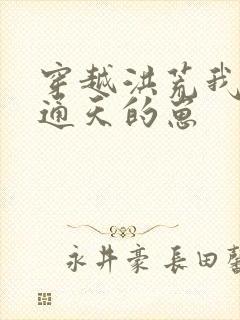 穿越洪荒我
通天的崽
永井豪 長田馨